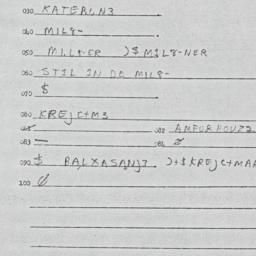 030 KATERIN3
040 MIL8-
050 MILLER )$MIL8-NER
060 STIL IN DE MIL8-
070 $
080 KREJC+M3
082 AMFORHOUZ2
083 —
090 $ BALXASANJ3 )+$KREJC+MAR
100 Ø